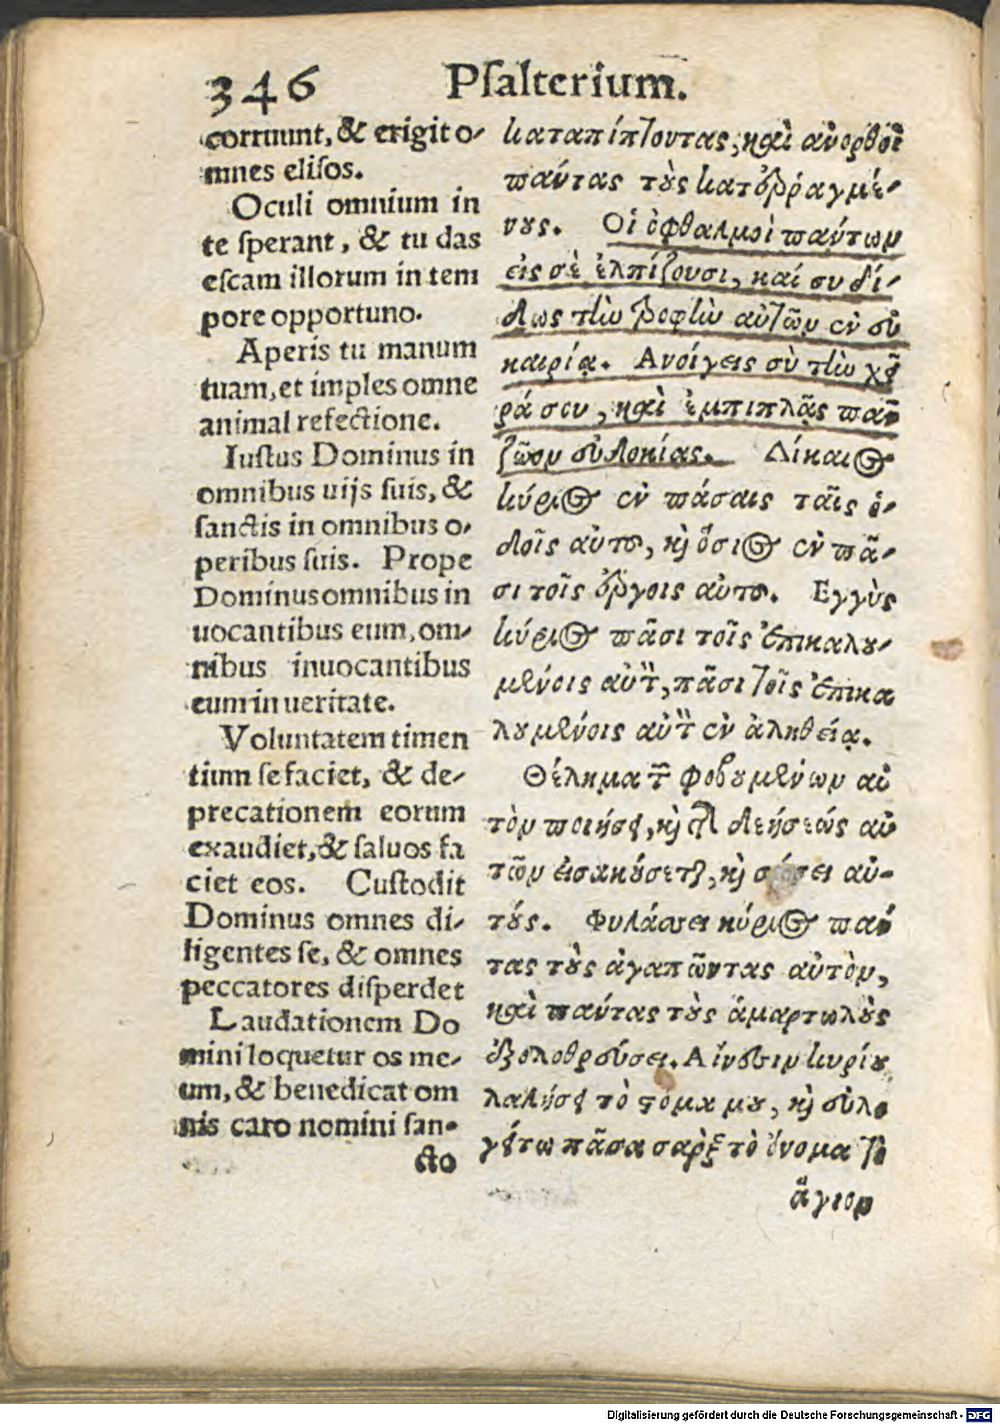 346 Psalterium.
corruunt, & erigit o-
mnes elisos.
Oculi omnium in
te sperant, & tu das
escam illorum in tem
pore opportuno.
Aperis tu manum
tuam, et imples omne
animal refectione.
Iustus Dominus in
omnibus uijs suis, &
sanctis in omnibus o-
peribus suis. Prope
Dominus omnibus in
uocantibus eum, om-
nibus inuocantibus
eum in ueritate.
Voluntatem timen
tium se faciet, & de-
precationem eorum
exaudiet, & saluos fa
ciet eos. Custodit
Dominus omnes di-
ligentes se, & omnes
peccatores disperdet
Laudationem Do
mini loquetur os me-
um, & benedicat om
nis caro nomini san-
cto
καταπίπτοντας, καὶ ἀνορθοῖ
πάντας τοὺς κατεῤῥαγμέ-
νους. Οἱ ὀφθαλμοὶ πάντων
εἰς σὲ ἐλπίζουσι, καί συ δί-
δως τὴν τροφὴν αὐτῶν ἐν εὐ
καιρίᾳ. Ανοίγεις σὺ τὴν χεῖ
ρά σου, καὶ ἐμπιπλᾷς πᾶν
ζῶον εὐδοκίας. Δίκαιος
κύριος ἐν πάσαις ταῖς ὁ-
δοῖς αὐτοῦ, καὶ ὅσιος ἐν πᾶ-
σι τοῖς ἔργοις αὐτοῦ. Εγγὺς
κύριος πᾶσι τοῖς ἐπικαλου-
μένοις αὐτὸν, πᾶσι τοῖς ἐπικα
λουμένοις αὐτὸν ἐν ἀληθείᾳ.
Θέλημα τῶν φοβουμένων αὐ
τὸν ποιήσει, καὶ τῆς δεήσεώς αὐ
τῶν εἰσακούσεται, καὶ σώσει αὐ-
τούς. Φυλάσσει κύριος πάν
τας τοὺς ἀγαπῶντας αὐτὸν,
καὶ πάντας τοὺς ἁμαρτωλοὺς
ἐξολοθρεύσει. Αἴνεσιν κυρίου
λαλήσει τὸ στόμα μου, καὶ εὐλο
γείτω πᾶσα σαρξ τὸ ὄνομα τὸ
ἅγιον
Digitalisierung gefördert durch die Deutsche Forschungsgemeinschaft - DFG